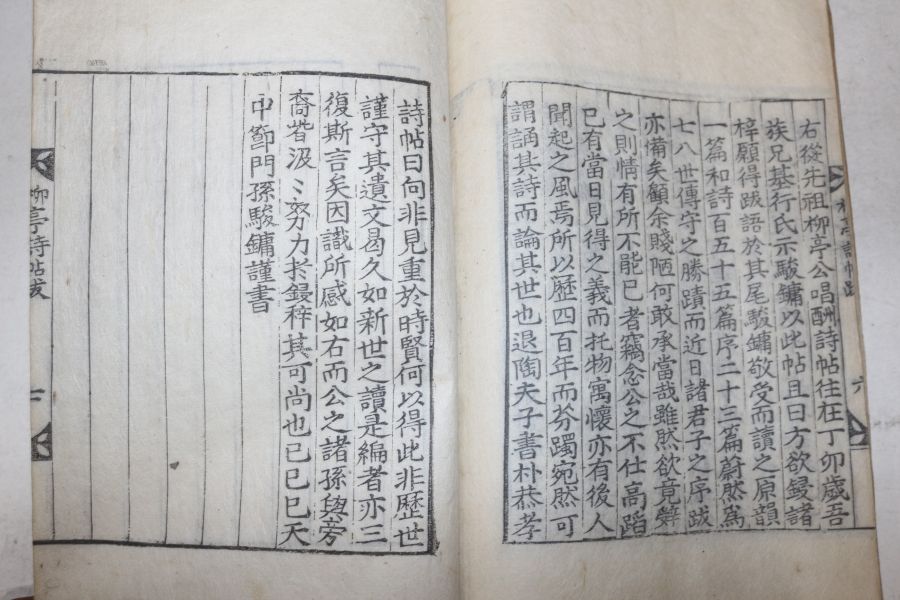 右從先祖柳亭公唱酬詩帖往在丁卯歲吾
族兄基行氏示駿鏞以此帖且曰方欲鋟諸
梓願得跋語於其尾駿鏞敬受而讀之原韻
一篇和詩百五十五篇序二十三篇蔚然爲
七八世傳守之勝蹟而近日諸君子之序跋
亦備矣顧余賤陋何敢承當哉雖然欲竟辭
之則情有所不能已者竊念公之不仕高蹈
已有當日見得之義而托物寓懷亦有後人
聞起之風焉所以歷四百年而芬躅宛然可
謂誦其詩而論其世也退陶夫子書朴恭孝
詩帖曰向非見重於時賢何以得此非歷世
謹守其遺文曷久如新世之讀是編者亦三
復斯言矣因識所感如右而公之諸孫與旁
裔皆汲〻努力於鋟梓其可尚也已己巳天
中節門孫駿鏞謹書
柳亭詩帖跋
六